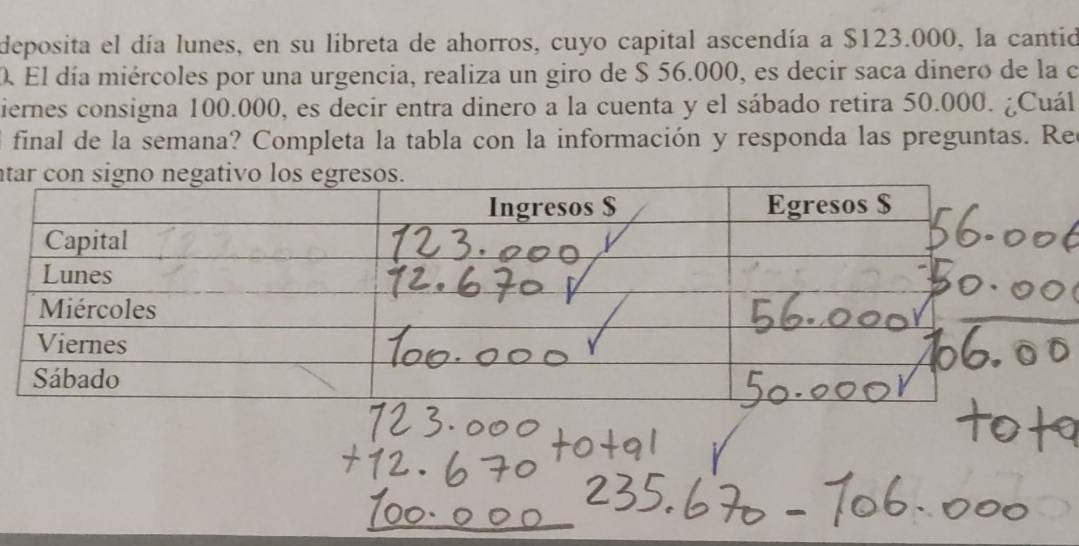 deposita el día lunes, en su libreta de ahorros, cuyo capital ascendía a $123.000, la cantid
0. El día miércoles por una urgencia, realiza un giro de $ 56.000, es decir saca dinero de la c
iernes consigna 100.000, es decir entra dinero a la cuenta y el sábado retira 50.000. ¿Cuál
final de la semana? Completa la tabla con la información y responda las preguntas. Re
ntar con signo negativo los egresos.
Ingresos $ Egresos $
Capital 123.000 ✓ 56.000
Lunes 12.670 ✓ -50.00
Miércoles 56.000 ✓
Viernes 100.000 ✓ 106.00
Sábado 50.000 ✓
123.000 total ✓ tota
+12.670
100.000 235.670 - 106.000